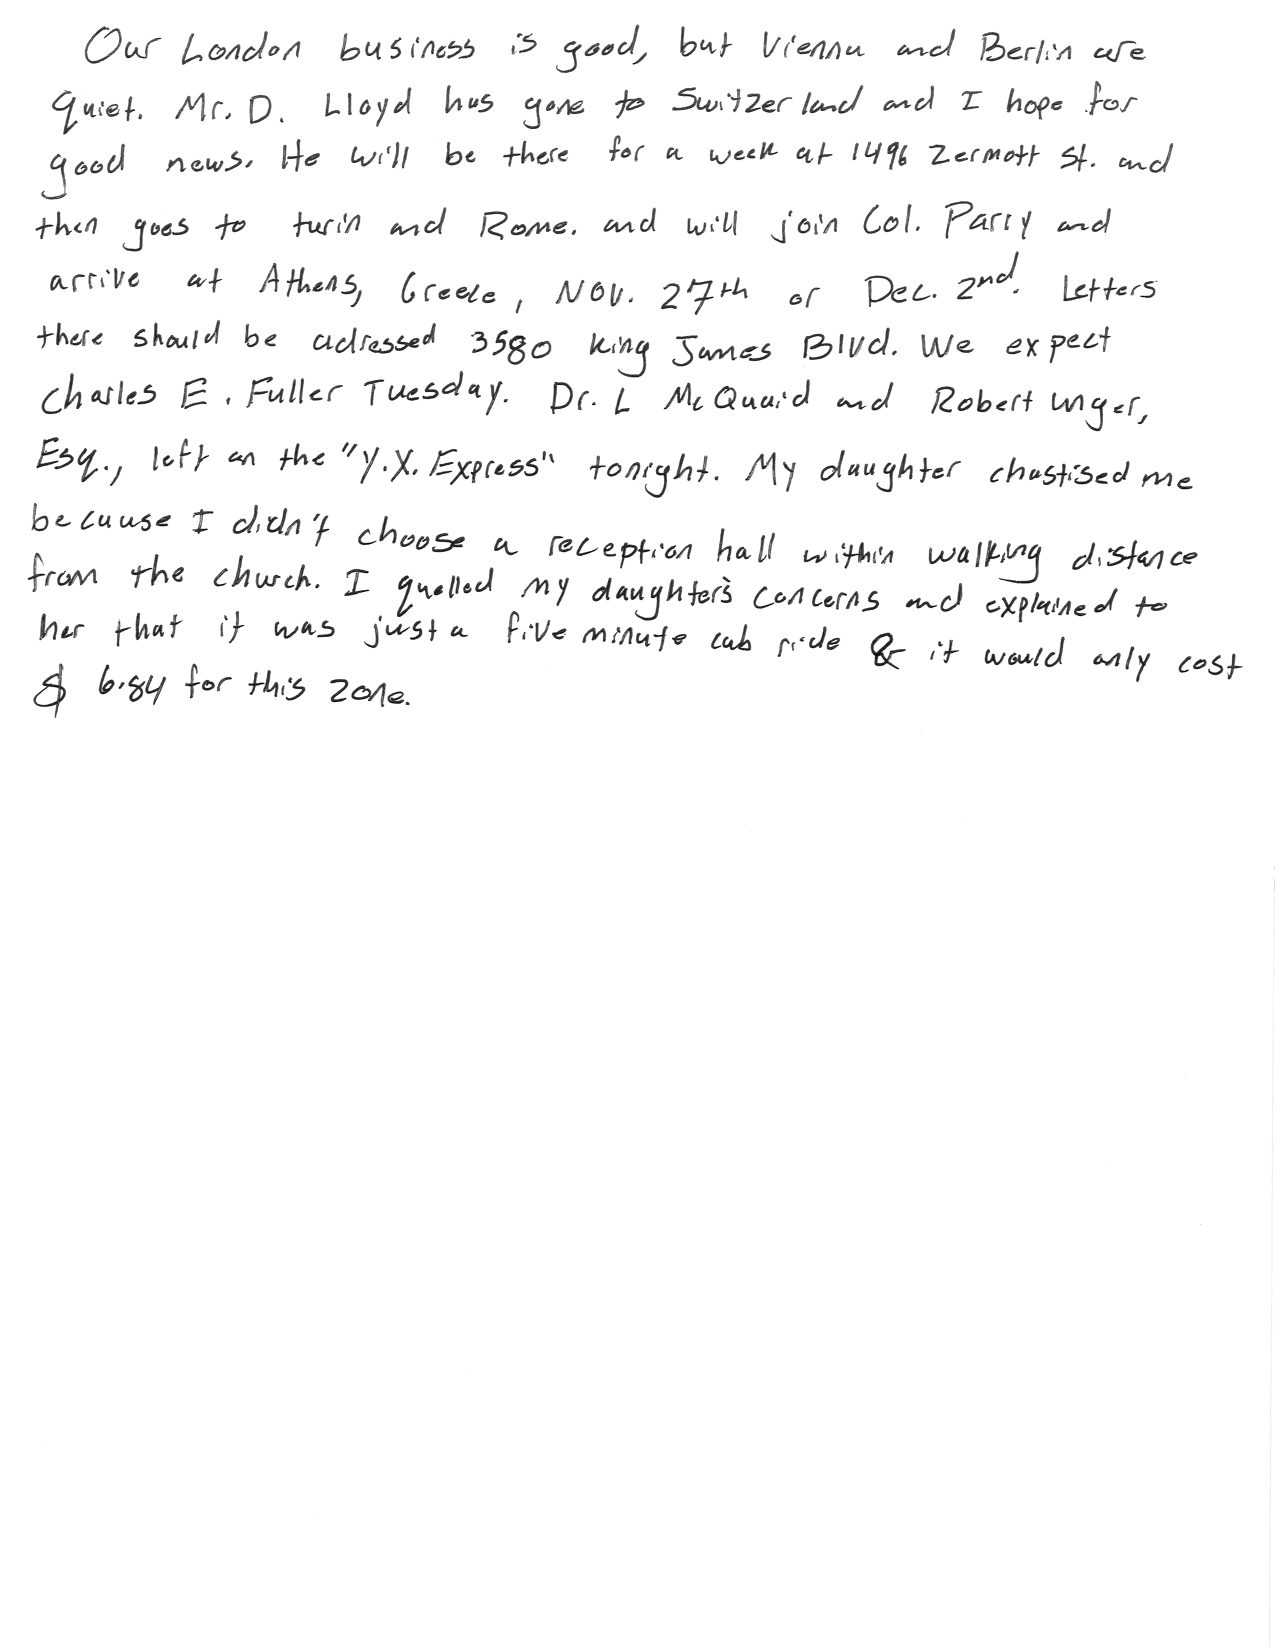 Our London business is good, but Vienna and Berlin are
quiet. Mr. D. Lloyd has gone to Switzerland and I hope for
good news. He will be there for a week at 1496 Zermott St. and
then goes to turin and Rome. and will join Col. Parry and
arrive at Athens, Greece, Nov. 27th or Dec. 2nd. Letters
there should be adressed 3580 King James Blvd. We expect
Charles E. Fuller Tuesday. Dr. L McQuaid and Robert Unger,
Esq., left on the "Y.X. Express" tonight. My daughter chastised me
because I didn't choose a reception hall within walking distance
from the church. I quelled my daughter's concerns and explained to
her that it was just a five minute cab ride & it would only cost
$ 6.84 for this zone.